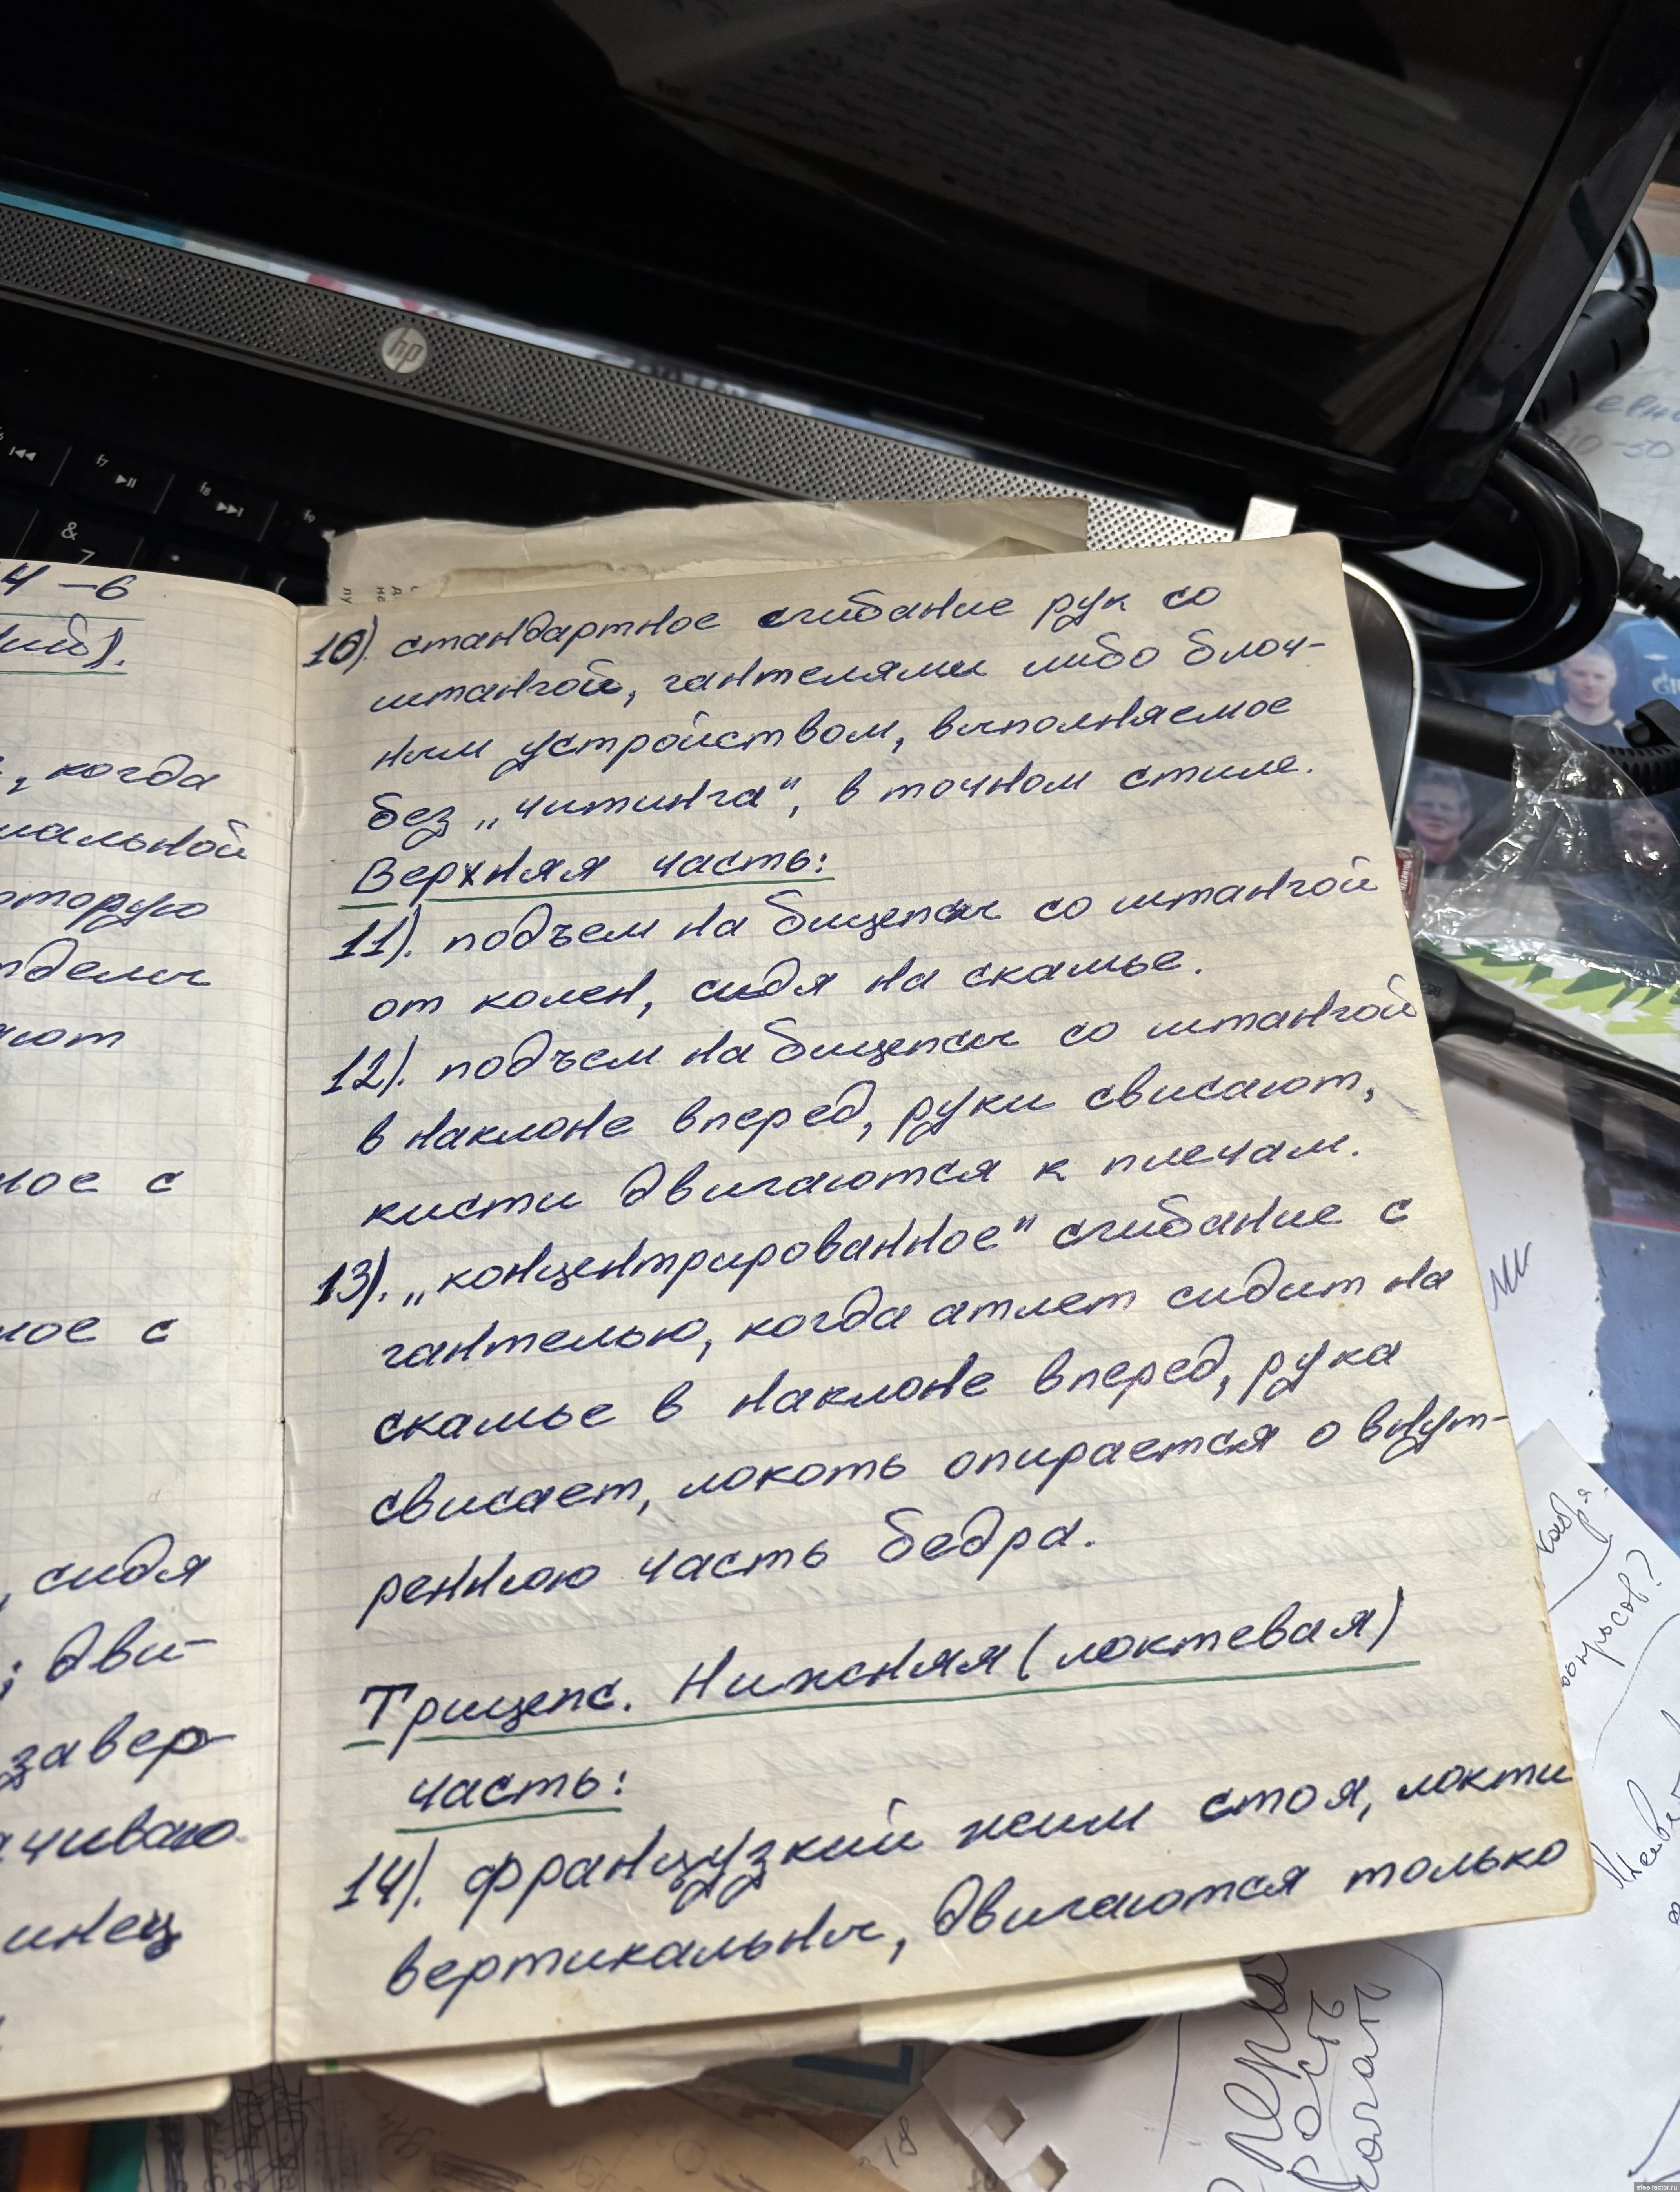 4-6
когда
мальной
оторую
ное с
ное с
, сидя
; дви-
завер-
10). стандартное сгибание рук со
штангой, гантелями либо блоч-
ным устройством, выполняемое
без „читинга", в точном стиле.
Верхняя часть:
11). подъем на бицепсы со штангой
от колен, сидя на скамье.
12). подъем на бицепсы со штангой
в наклоне вперед, руки свисают,
кисти двигаются к плечам.
13). „концентрированное" сгибание с
гантелью, когда атлет сидит на
скамье в наклоне вперед, рука
свисает, локоть опирается о внут-
реннюю часть бедра.
Трицепс. Нижняя (локтевая)
часть:
14). французкий жим стоя, локти
вертикальны, двигаются только
hp
f7
f8
f9
&
7
10-50
вопросов?
18
steelfactor.ru